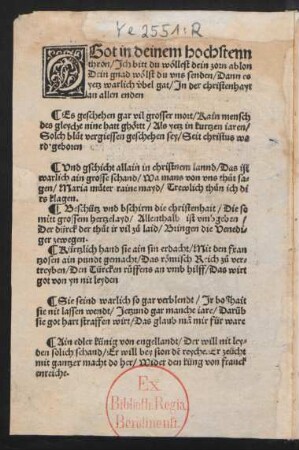 Ye 2551:R
O Got in deinem hochstenn
thron/Ich bitt du wöllest dein zorn ablon
Dein gnad wölst du vns senden/Dann es
yetz warlich vbel gat/In der christenhayt
an allen enden
¶ Es geschehen gar vil grosser mort/Kain mensch
des gleycht nine hatt ghört/Als yetz in kurtzen iaren/
Solch blůt vergiessen geschehen sey/Seit christus wa
rd geboren
¶ Vnd gschicht allain in christnem lannd/Das ist
warlich ain grosse schand/Wa mans von vns thůt sa
gen/Maria můter raine mayd/Trewlich thůn ich di
rs klagen.
¶ Bschütz vnd bschirm die christenhait/Die so
mitt grossem hertzelayd/Allenthalb ist vmbgeben/
Der dürck der thůt ir vil zů laid/Bringen die Venedi
ger zewegen.
¶ Kürtzlich hand sie ain sin erdacht/Mit den fran
tzosen ain pundt gemacht/Das römisch Reich zů ver
treyben/Den Türcken růffens an vmb hilff/Das wirt
got von yn nit leyden
¶ Sie seind warlich so gar verblendt/Ir boßhait
sie nit lassen wendt/Jetzund gar manche iare/Darüb
sie got hart straffen wirt/Das glaub man mir für ware
¶ Ain edler künig von engellandt/Der will nit ley
den solich schand/Er will bey dē reyche. Er zeücht
mit gantzer macht do her/Wider den küng von franck
enreicht.
Ex
Biblioth. Regia
Berolinensi.